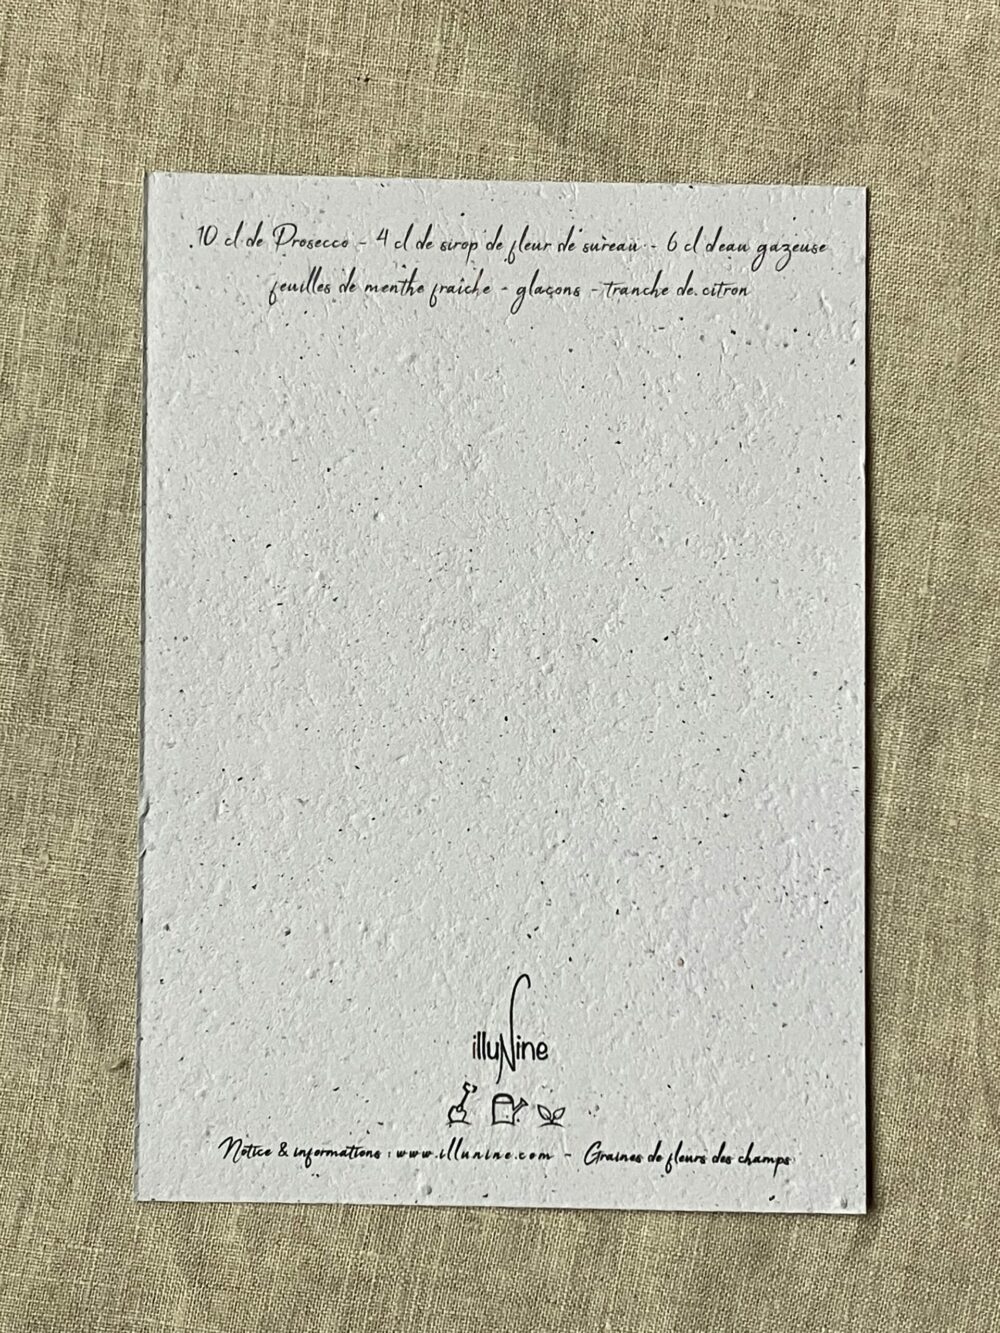 10 cl de Prosecco - 4 cl de sirop de fleur de sureau - 6 cl deau gazeuse
feuilles de menthe fraîche - glaçons - tranche de citron
illuNine
Notice & informations : www.illunine.com - Graines de fleurs des champs